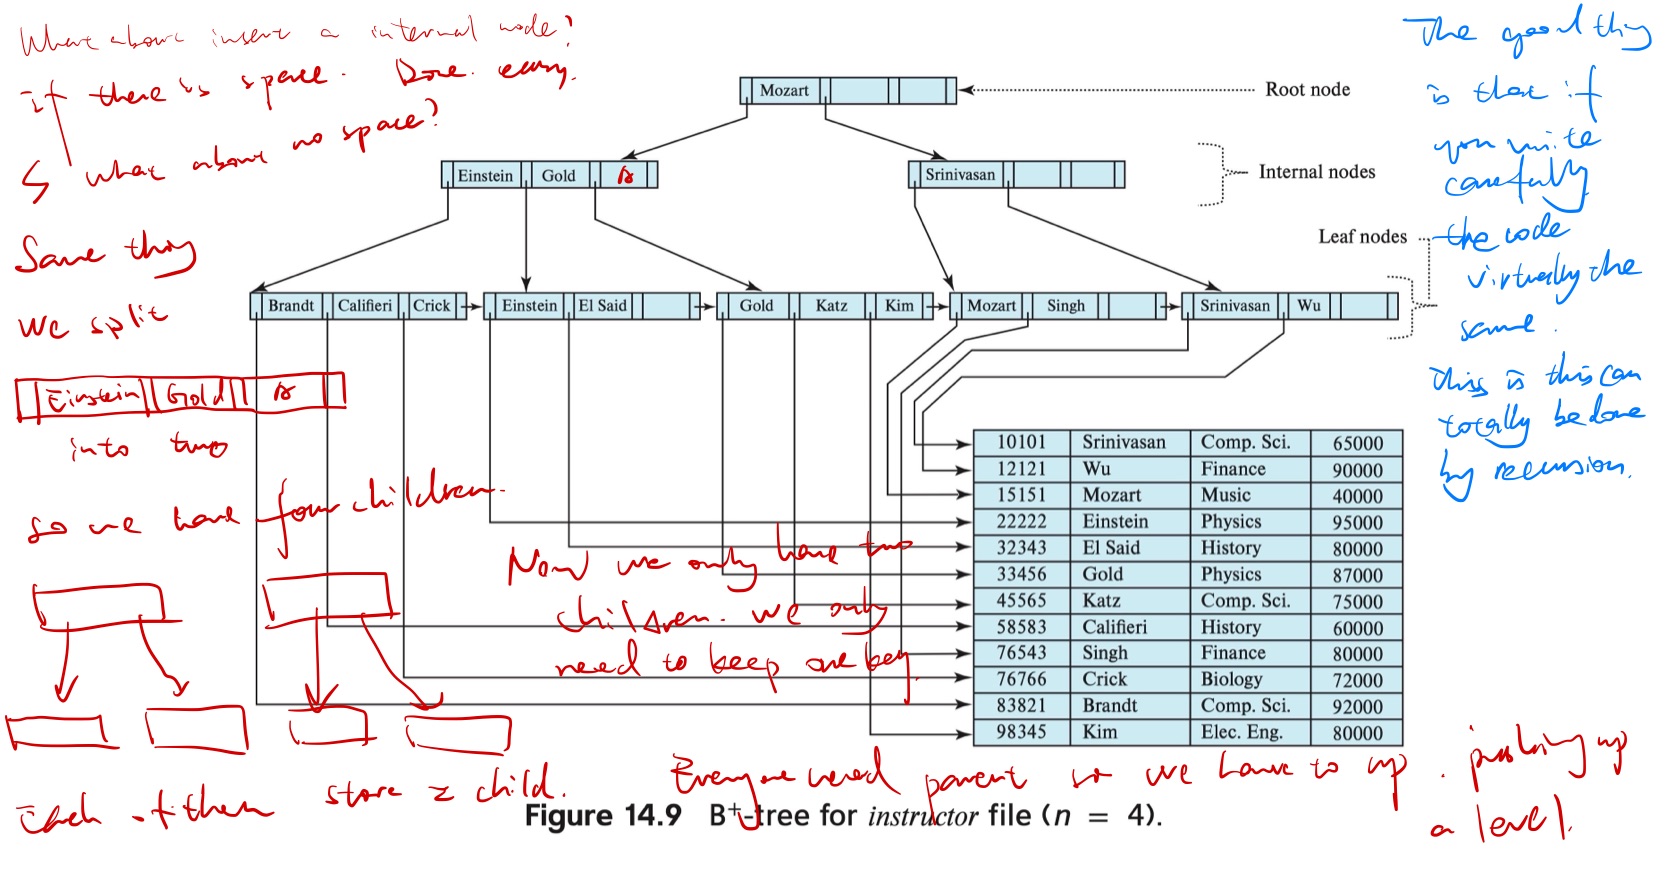 What about insert a internal node?
if there is space. Done. easy.
↳ what about no space?
Same thing
we split
Einstein Gold
into two
so we have four children.
Each of them store 2 child.
Now we only have two
children. we only
need to keep one key.
Everyone need parent so we have to up. pushing up
a level.
The good thing
is that if
you write
carefully
the code
virtually the
same.
This is this can
totally be done
by recursion.
Mozart
Root node
Einstein Gold
Srinivasan
Internal nodes
Leaf nodes
Brandt Califieri Crick
Einstein El Said
Gold Katz Kim
Mozart Singh
Srinivasan Wu
10101 Srinivasan Comp. Sci. 65000
12121 Wu Finance 90000
15151 Mozart Music 40000
22222 Einstein Physics 95000
32343 El Said History 80000
33456 Gold Physics 87000
45565 Katz Comp. Sci. 75000
58583 Califieri History 60000
76543 Singh Finance 80000
76766 Crick Biology 72000
83821 Brandt Comp. Sci. 92000
98345 Kim Elec. Eng. 80000
Figure 14.9 B⁺-tree for instructor file (n = 4).